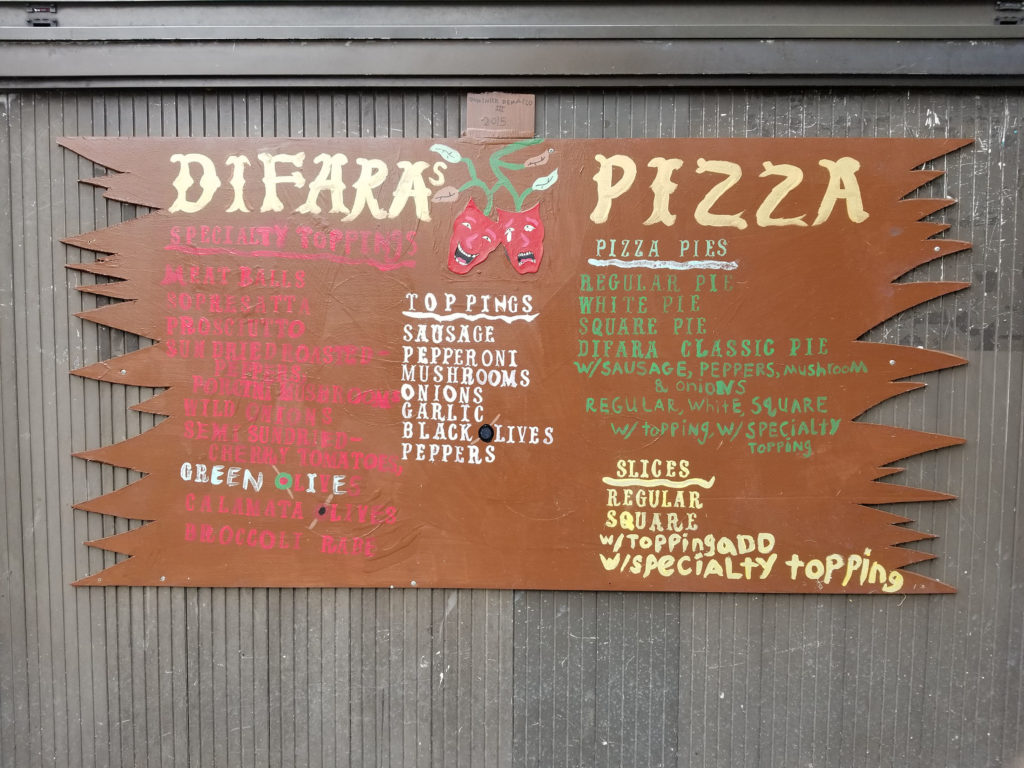 III
2015
DIFARA's PIZZA
SPECIALTY TOPPINGS
MEAT BALLS
SOPRESATTA
PROSCIUTTO
SUN DRIED ROASTED-
PEPPERS
PORCINI MUSHROOMS
WILD ONIONS
SEMI SUNDRIED-
CHERRY TOMATOES
GREEN OLIVES
CALAMATA OLIVES
BROCCOLI RABE
TOPPINGS
SAUSAGE
PEPPERONI
MUSHROOMS
ONIONS
GARLIC
BLACK OLIVES
PEPPERS
PIZZA PIES
REGULAR PIE
WHITE PIE
SQUARE PIE
DIFARA CLASSIC PIE
W/SAUSAGE, PEPPERS, MUSHROOM
& ONIONS
REGULAR, WHITE, SQUARE
W/TOPPING, W/SPECIALTY
TOPPING
SLICES
REGULAR
SQUARE
W/TOPPING ADD
W/SPECIALTY TOPPING